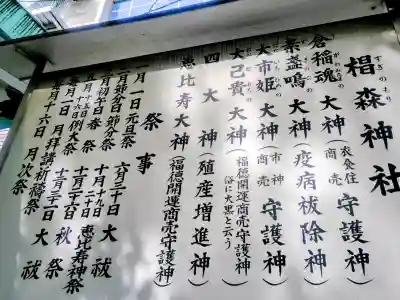 椙森神社
すぎのもり
倉稲魂大神（衣食住守護神）
素盞嗚大神（疫病祓除神）
大市姫大神（市神商売守護神）
大己貴大神（福徳開運商売守護神 俗に大黒と云う）
四大神（殖産増進神）
恵比寿大神（福徳開運商売守護神）
祭事
一月一日元旦祭
二月節分日節分祭
二月初午日春祭
五月十五日例大祭
毎月一日月次祭
毎月十六日月次祭
六月三十日大祓
十月十九日恵比寿神祭